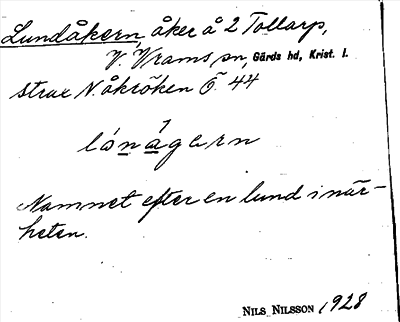 Lundåkern, åker å 2 Tollarp,
V. Vrams sn, Gärds hd, Krist. l.
strax N. åkröken Ö. 44
lónágern
Namnet efter en lund i när-
heten.
NILS NILSSON 1928